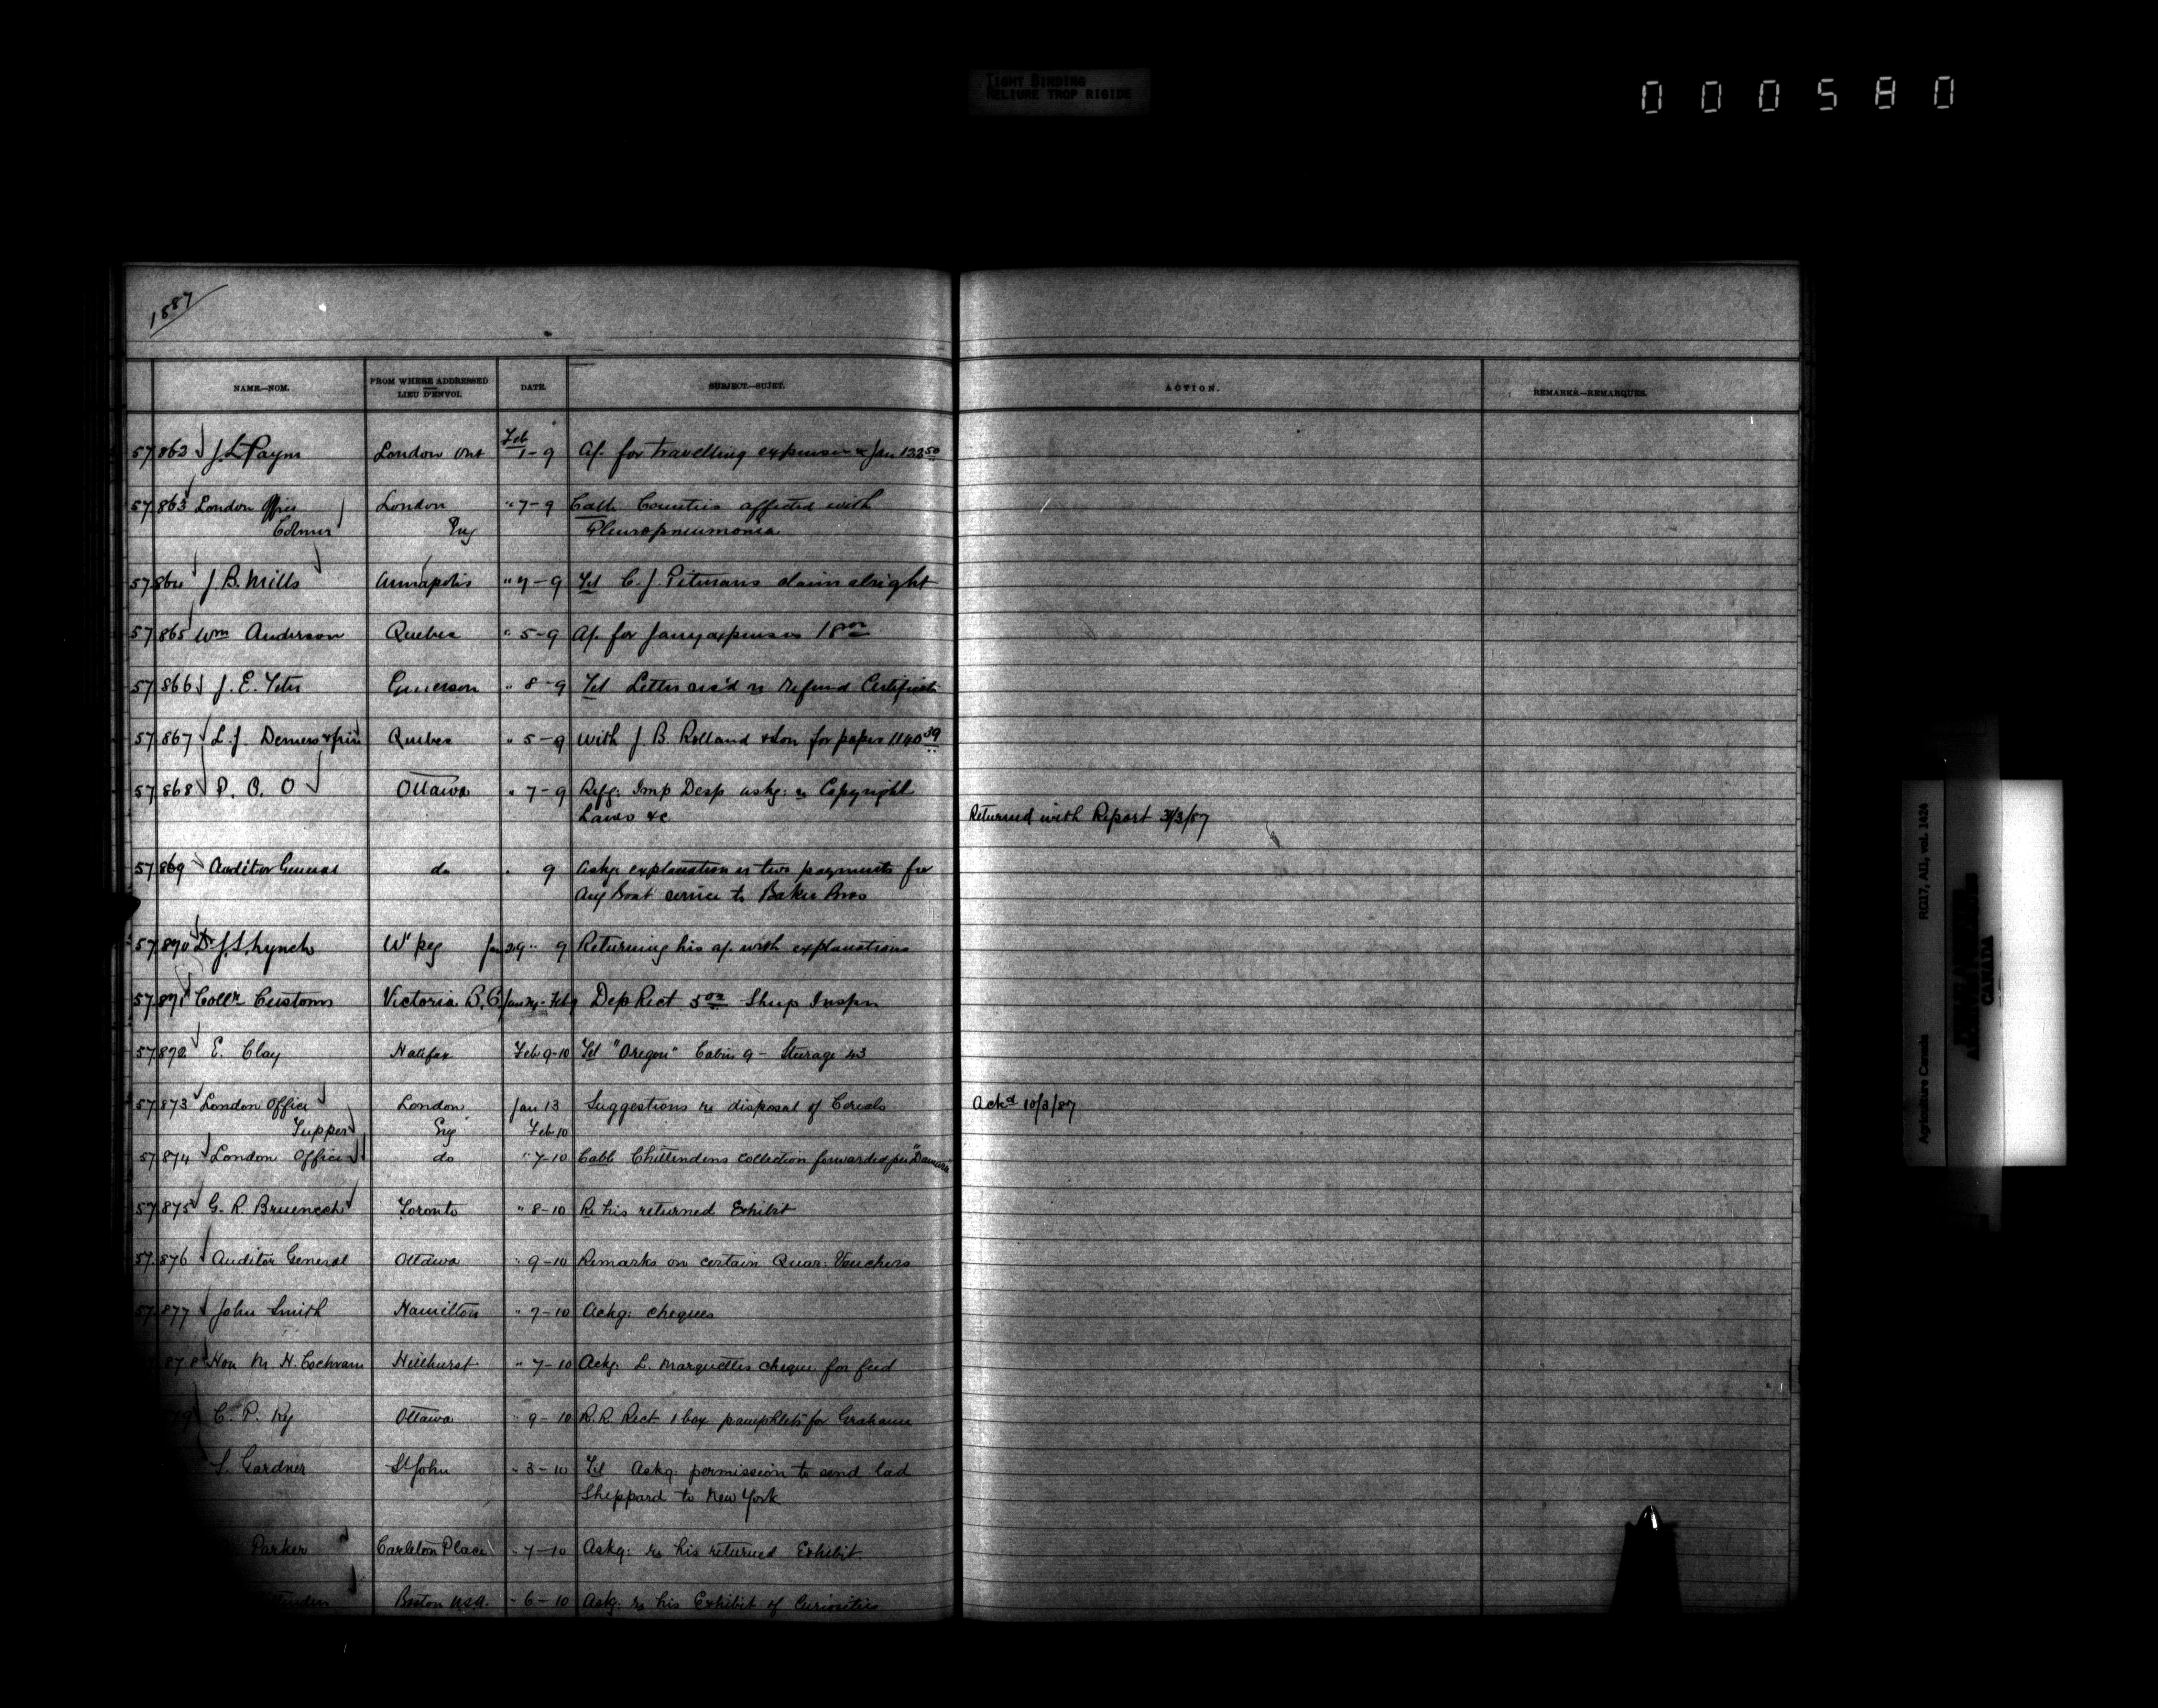 TIGHT BINDING
RELIURE TROP RIGIDE
000580
1887
NAME.—NOM. FROM WHERE ADDRESSED LIEU D'ENVOI. DATE. SUBJECT.—SUJET. ACTION. REMARKS.—REMARQUES.
57 862 J. L. Payne London Ont Feb 1-9 A/. for travelling expenses & Jan 122 50
57 863 London Office London " 7-9 Cable Counties affected with
Colmer Eng Pleuropneumonia
57 864 J. B. Mills Annapolis " 9-9 Tel C. J. Pitmans claim alright
57 865 Wm Anderson Quebec " 5-9 A/. for Jany expenses 18 00
57 866 J. E. Tetu Emerson " 8-9 Tel Letter rec'd re Refund Certificate
57 867 L. J. Demers & frère Quebec " 5-9 With J. B. Rolland & Son for paper 1140 39
57 868 P. C. O Ottawa " 7-9 Refg: Imp Desp askg: re Copyright
Laws &c Returned with Report 3/3/87
57 869 Auditor General do " 9 Askg explanation re two payments for
Aug Boat service to Baker Bros
57 870 Dr J. S. Lynch W'peg Jan 29 " 9 Returning his a/. with explanations
57 871 Collr Customs Victoria B.C Jan 24 - Feb 9 Dep Rect 5 00 Sheep Inspn
57 872 E. Clay Halifax Feb 9-10 Tel "Oregon" Cabin 9 - Steerage 43
57 873 London Office London Jan 13 Suggestions re disposal of Cereals Ackd 10/3/87
Tupper Eng Feb 10
57 874 London Office do " 7-10 Cable Chittendens collection forwarded per "Damara"
57 875 G. R. Bruenech Toronto " 8-10 Re his returned Exhibit
57 876 Auditor General Ottawa " 9-10 Remarks on certain Quar: Vouchers
57 877 John Smith Hamilton " 7-10 Ackg: cheques
878 Hon M. H. Cochrane Hillhurst " 7-10 Ackg: L. Marquettes cheque for feed
79 C. P. Ry Ottawa " 9-10 R.R. Rect 1 box pamphlets for Grahame
S. Gardner St John " 3-10 Tel Askg: permission to send lad
Sheppard to New York
Parker Carleton Place " 7-10 Askg: re his returned Exhibit
ttenden Boston USA. " 6-10 Askg: re his Exhibit of Curiosities
Agriculture Canada RG17, AII, vol. 1424
CANADA